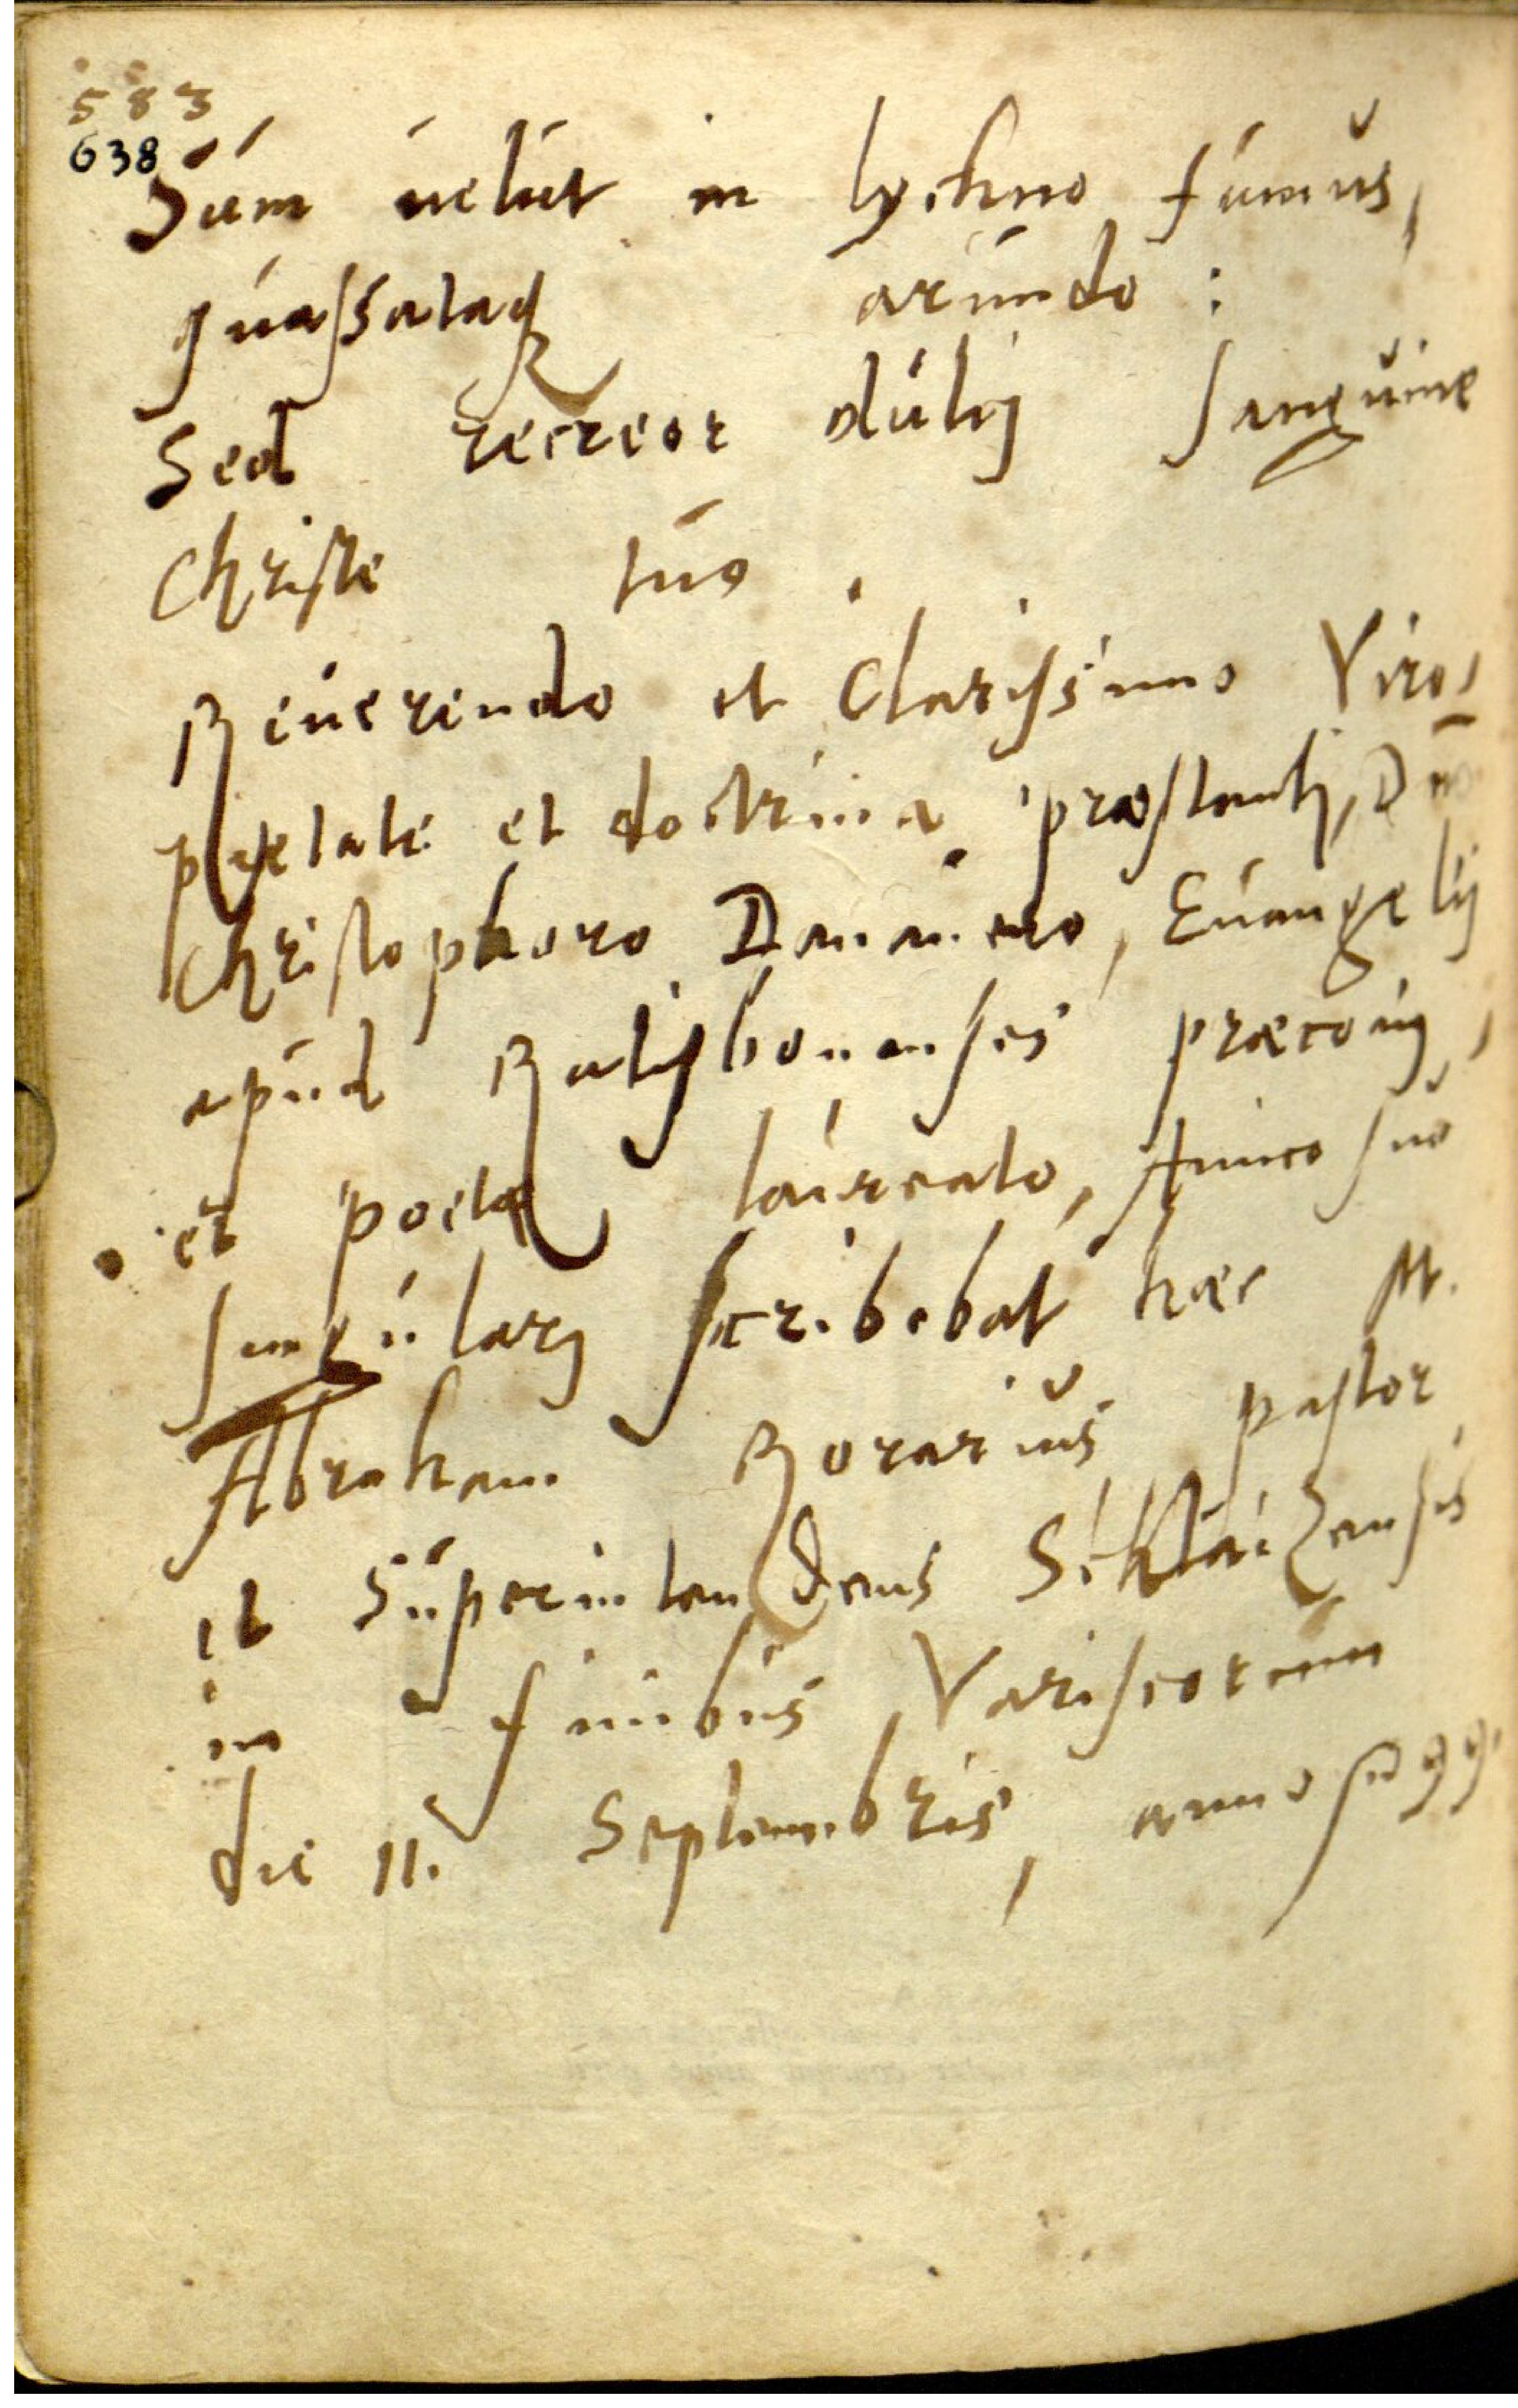 583
638
Sum uelut in lychno fumus,
quassataq
arundo :
Sed recreor dulcj sanguine
Christe tuo.
Reuerendo et Clarissimo Viro,
pietate et doctrina præstantj, Dno
Christophoro Donauero, Euangelij
apud Ratisbonenses præconj,
et poetæ laureato, Amico suo
singularj scribebat hæc M.
Abraham Rorarius pastor
et Superintendens
in finibus Variscorum
die 11. Septembris, anno 99.